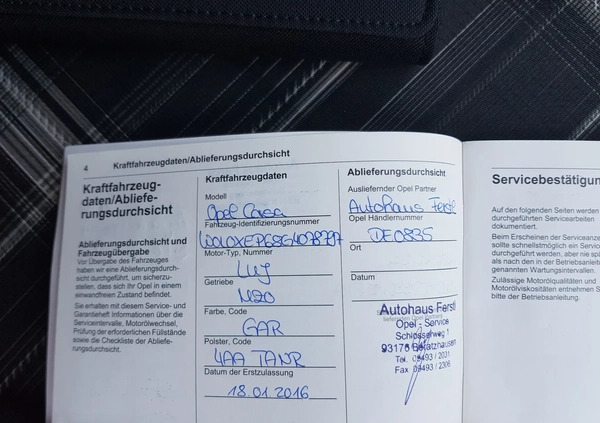 4 Kraftfahrzeugdaten/Ablieferungsdurchsicht
Kraftfahrzeug-
daten/Abliefe-
rungsdurchsicht
Ablieferungsdurchsicht und
Fahrzeugübergabe
Vor Übergabe des Fahrzeuges
haben wir eine Ablieferungsdurch-
sicht durchgeführt, um sicherzu-
stellen, dass sich Ihr Opel in einem
einwandfreien Zustand befindet.
Sie erhalten mit diesem Service- und
Garantieheft Informationen über die
Serviceintervalle, Motorölwechsel,
Prüfung der erforderlichen Füllstände
sowie die Checkliste der Abliefe-
rungsdurchsicht.
Kraftfahrzeugdaten
Modell
Opel Corsa
Fahrzeug-Identifizierungsnummer
Motor-Typ, Nummer
LUJ
Getriebe
MZ0
Farbe, Code
GAR
Polster, Code
4AA TANR
Datum der Erstzulassung
18.01.2016
Ablieferungsdurchsicht
Ausliefernder Opel Partner
Autohaus Ferstl
Opel Händlernummer
DE0835
Ort
Datum
Autohaus Ferstl
Opel - Service
Schlosserweg 1
93176 Beratzhausen
Tel. 09493 / 2031
Fax 09493 / 2306
Servicebestätigun
Auf den folgenden Seiten werden
durchgeführten Servicearbeiten
dokumentiert.
Beim Erscheinen der Serviceanze
sollte schnellstmöglich ein Servic
durchgeführt werden, aber nie spä
als nach den in der Betriebsanleit
genannten Wartungsintervallen.
Zulässige Motorölqualitäten und
Motorölviskositäten entnehmen S
bitte der Betriebsanleitung.